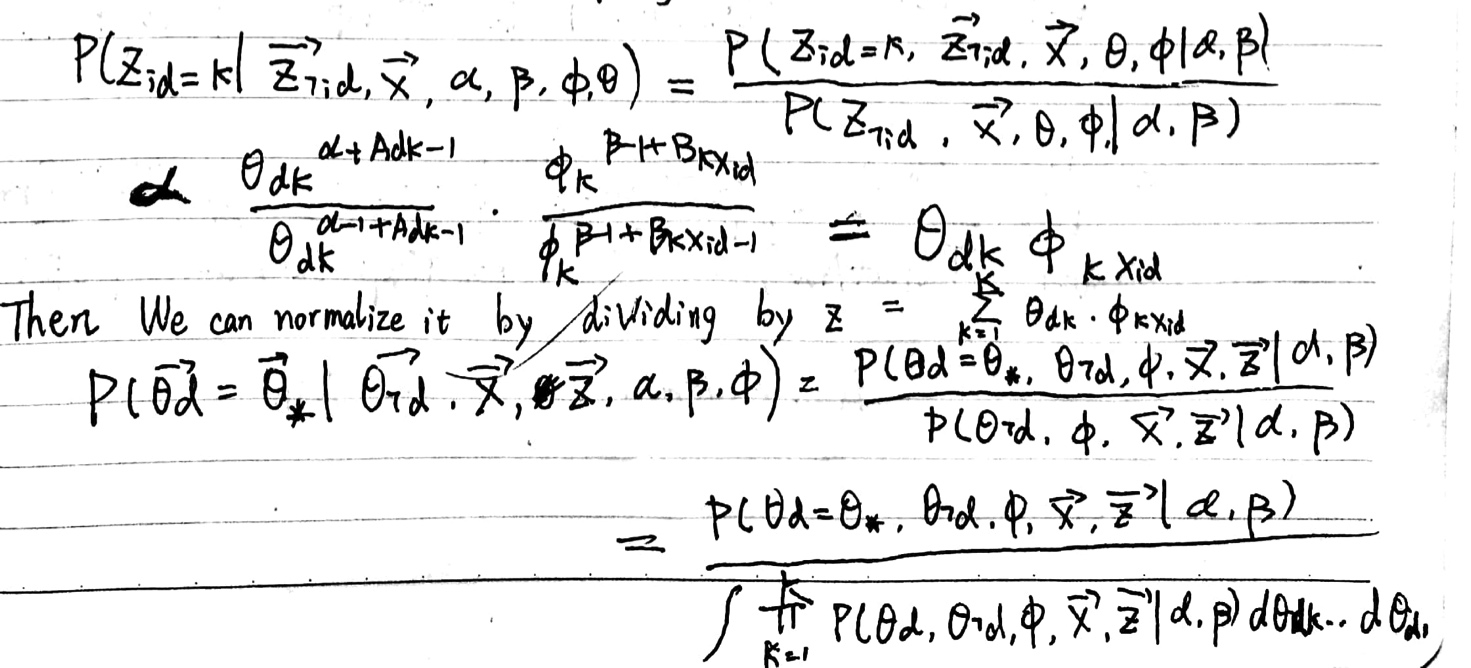 P(Z_id = k | Z⃗_¬id, X⃗, α, β, ϕ, θ) = P(Z_id = k, Z⃗_¬id, X⃗, θ, ϕ | α, β) / P(Z_¬id, X⃗, θ, ϕ, | α, β)
∝ θ_dk^(α+A_dk-1) / θ_dk^(α-1+A_dk-1) · ϕ_k^(β-1+B_kx_id) / ϕ_k^(β-1+B_kx_id-1) = θ_dk ϕ_k x_id
Then We can normalize it by dividing by z = Σ_{k=1}^{K} θ_dk · ϕ_kx_id
P(θ⃗_d = θ⃗_* | θ⃗_¬d, X⃗, Z⃗, α, β, ϕ) = P(θ_d = θ_*, θ_¬d, ϕ, X⃗, Z⃗ | α, β) / P(θ_¬d, ϕ, X⃗, Z⃗ | α, β)
= P(θ_d = θ_*, θ_¬d, ϕ, X⃗, Z⃗ | α, β) / ∫ ∏_{k=1}^{K} P(θ_d, θ_¬d, ϕ, X⃗, Z⃗ | α, β) dθ_dk .. dθ_d1